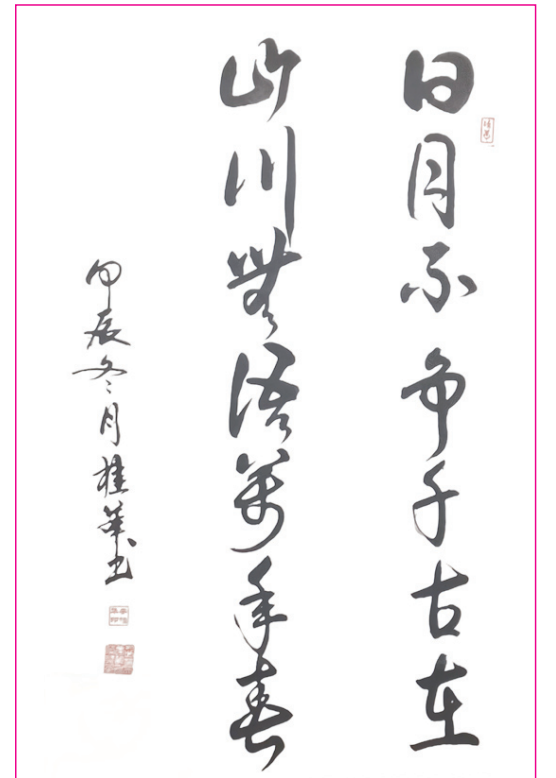 日月不争千古在
山川無语万年春
甲辰冬月桂华书